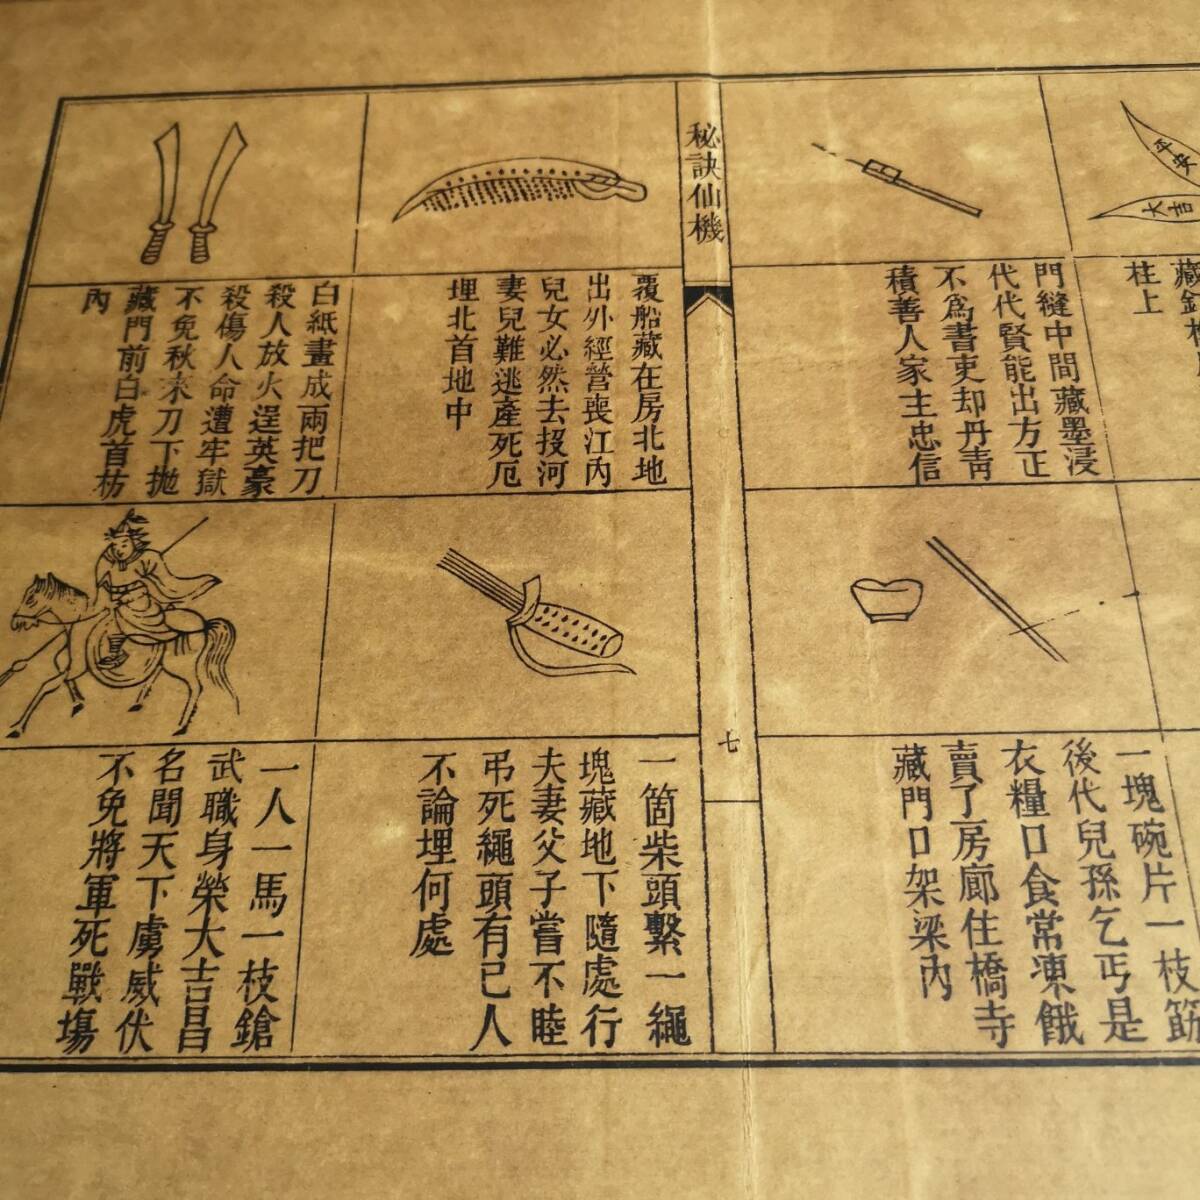 平安
大吉
柱上
門縫中間藏墨浸
代代賢能出方正
不爲書吏却丹青
積善人家主忠信
一塊碗片一枝筯
後代兒孫乞丐是
衣糧口食常凍餓
賣了房廊住橋寺
藏門口架梁內
秘訣仙機
七
覆船藏在房北地
出外經營喪江內
兒女必然去投河
妻兒難逃產死厄
埋北首地中
白紙畫成兩把刀
殺人放火逞英豪
殺傷人命遭牢獄
不免秋來刀下拋
藏門前白虎首枋
內
一箇柴頭繫一繩
塊藏地下隨處行
夫妻父子嘗不睦
弔死繩頭有已人
不論埋何處
一人一馬一枝鎗
武職身榮大吉昌
名聞天下虜威伏
不免將軍死戰塲